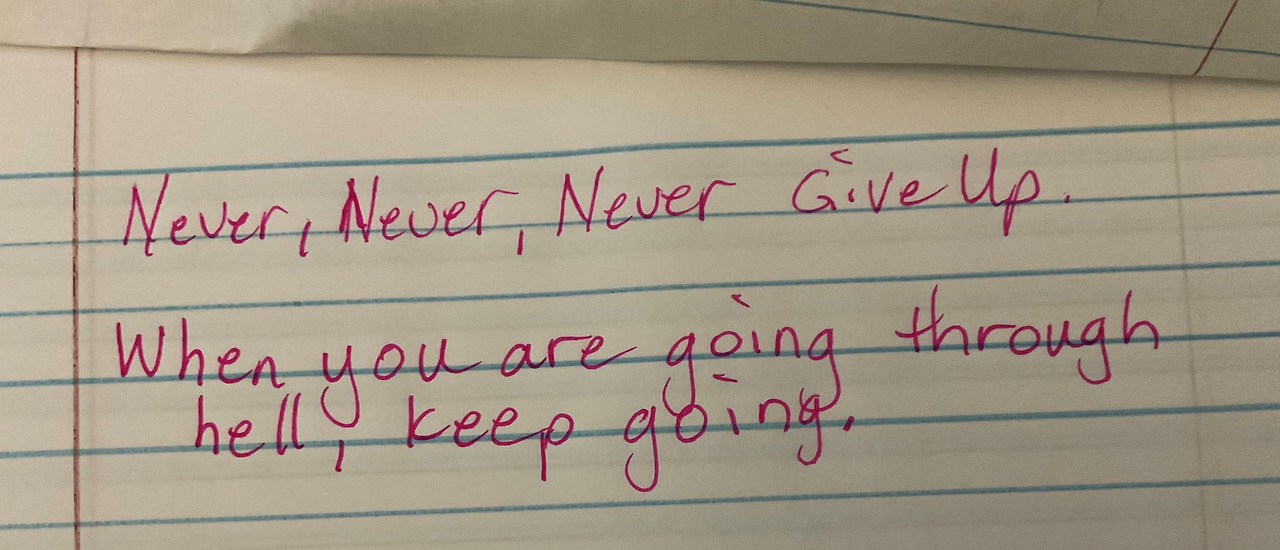 Never, Never, Never Give Up.
When you are going through
hell, keep going.